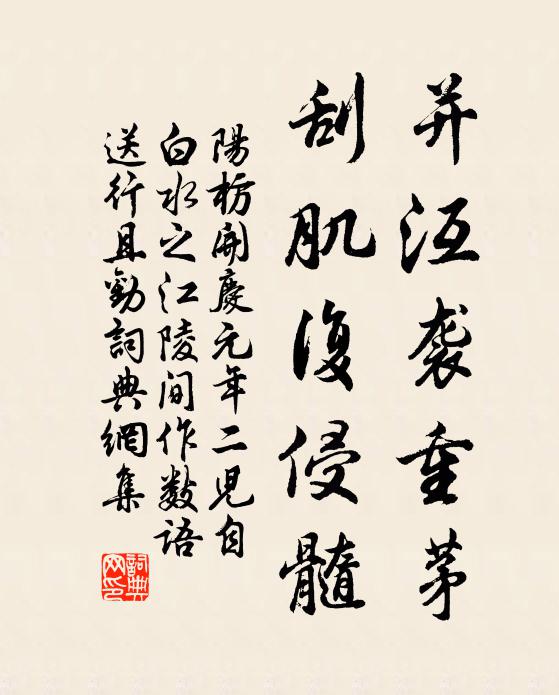 并沍袭重茅
刮肌復侵髓
陽枋開慶元年二児自
白水之江陵间作数语
送行且勸詞典網集
詞典网印